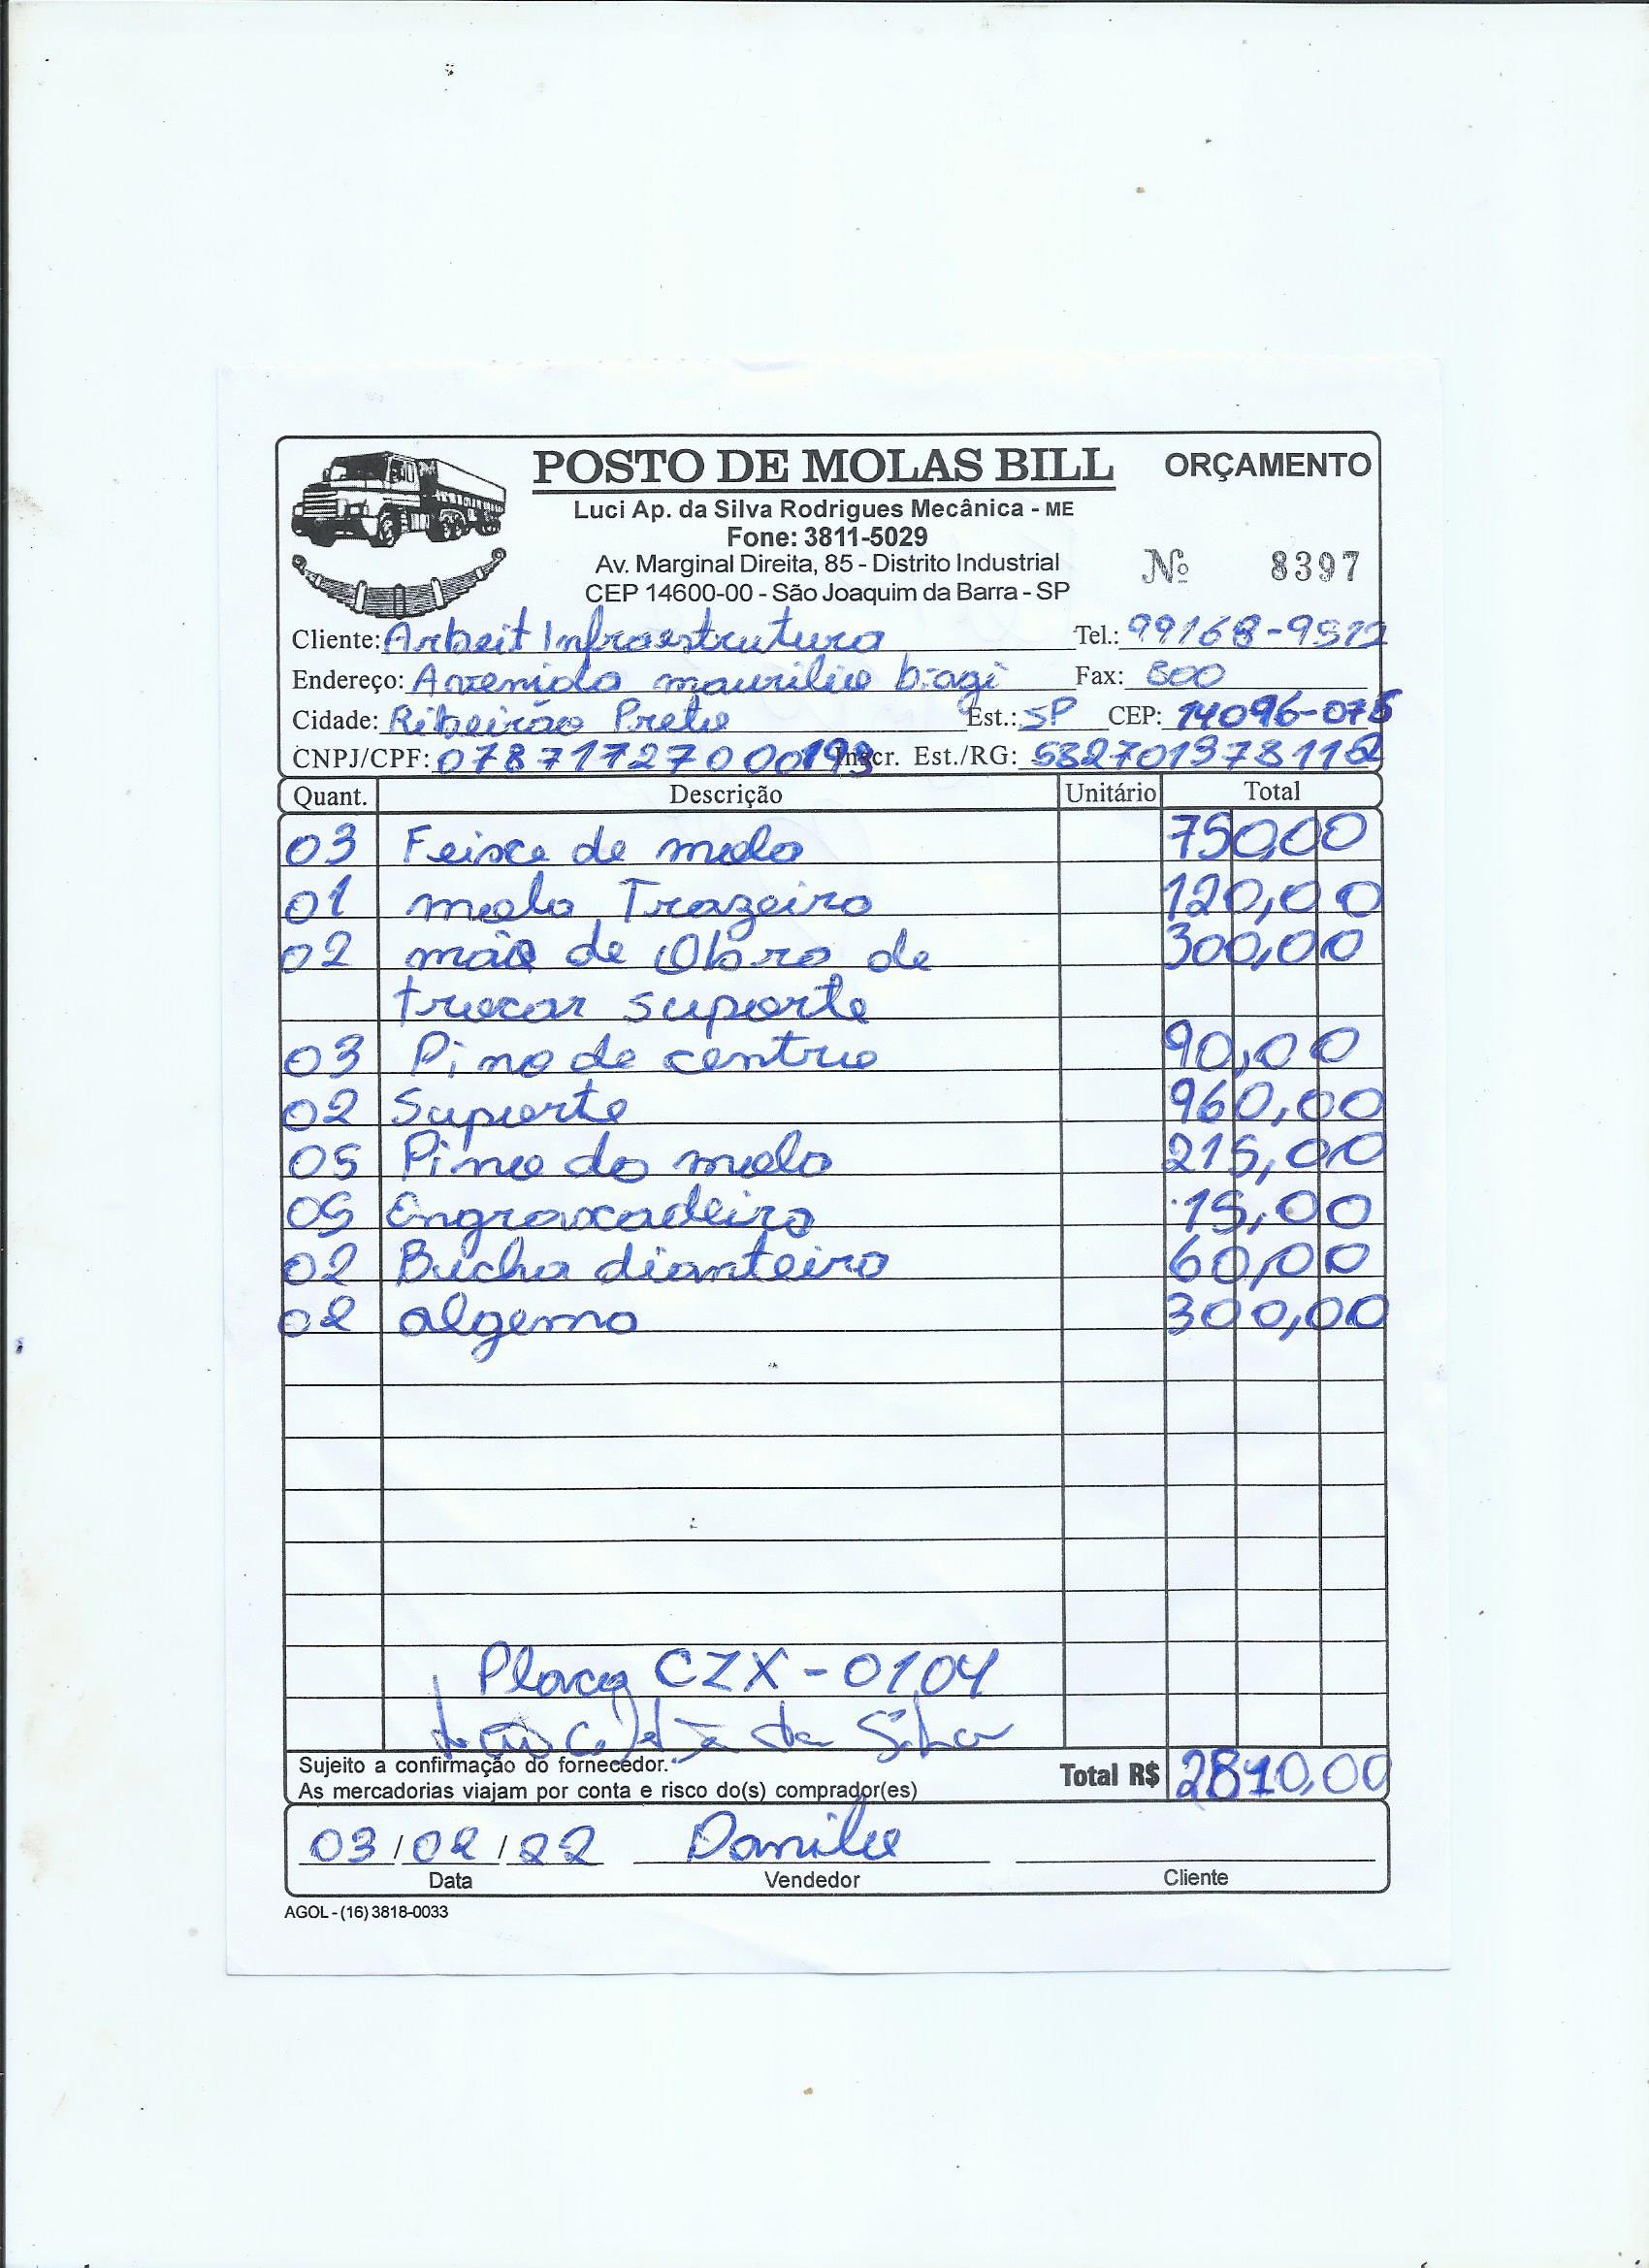 POSTO DE MOLAS BILL ORÇAMENTO
Luci Ap. da Silva Rodrigues Mecânica - ME
Fone: 3811-5029
Av. Marginal Direita, 85 - Distrito Industrial
CEP 14600-00 - São Joaquim da Barra - SP
Nº 8397
Cliente: Arbeit Infraestrutura Tel.: 99168-9512
Endereço: Avenida maurilio biagi Fax: 800
Cidade: Ribeirão Preto Est.: SP CEP: 14096-075
CNPJ/CPF: 07871727000193 Inscr. Est./RG: 582701378112
Quant. Descrição Unitário Total
03 Feixe de mola 750,00
01 mola Trazeira 120,00
02 mão de Obra de 300,00
trocar suporte
03 Pino de centro 90,00
02 Suporte 960,00
05 Pino da mola 215,00
05 Engraxadeira 15,00
02 Bucha dianteira 60,00
02 algema 300,00
Placa CZX-0104
da Silva
Sujeito a confirmação do fornecedor.
As mercadorias viajam por conta e risco do(s) comprador(es)
Total R$ 2810,00
03/02/22 Danilo
Data Vendedor Cliente
AGOL - (16) 3818-0033